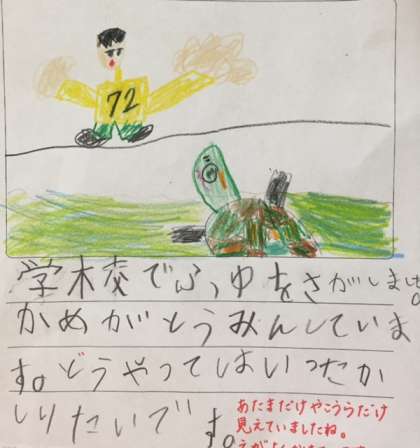 72
学校でふゆをさがしまし
かめがとうみんしていま
す。どうやってはいったか
しりたいです。
あたまだけやこうらだけ
見えていましたね。